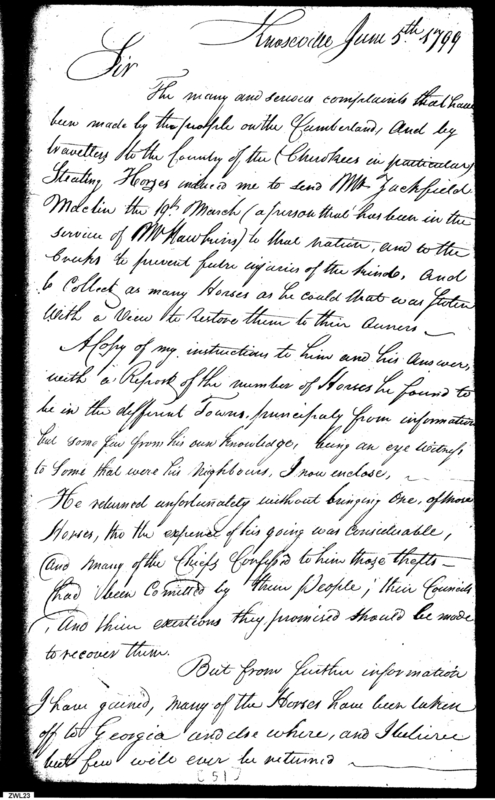 Knoxville June 5th. 1799
Sir
The many and serious complaints that have
been made by the people on the Cumberland, And by
travellers to the Country of the (Cherokees in particular)
Stealing Horses induced me to send Mr Zackfield
Maclin the 19th. March (a person that has been in the
service of Mr Hawkins) to that nation, and to the
Creeks to prevent futre injuries of the kind, And
to Collect as many Horses as he could that was stolen
With a View to restore them to their owners —
A Copy of my instructions to him and his Answer,
with a Report of the number of Horses he found to
be in the different Towns, principaly from information
but some few from his own knowledge, being an eye witness
to Some that were his Neighbours, I now enclose, —
He returned unfortunately without bringing One, of those
Horses, tho the expence of his going was considerable,
(and many of the Chiefs Confess'd to him those thefts —
(had been Comitted by their people; their Councils
, And their exertions they promised should be made
to recover them.
But from further information
I have gained, many of the Horses have been taken
off to Georgia and else where, and I believe
but few will ever be returned —
[51]
ZWL23